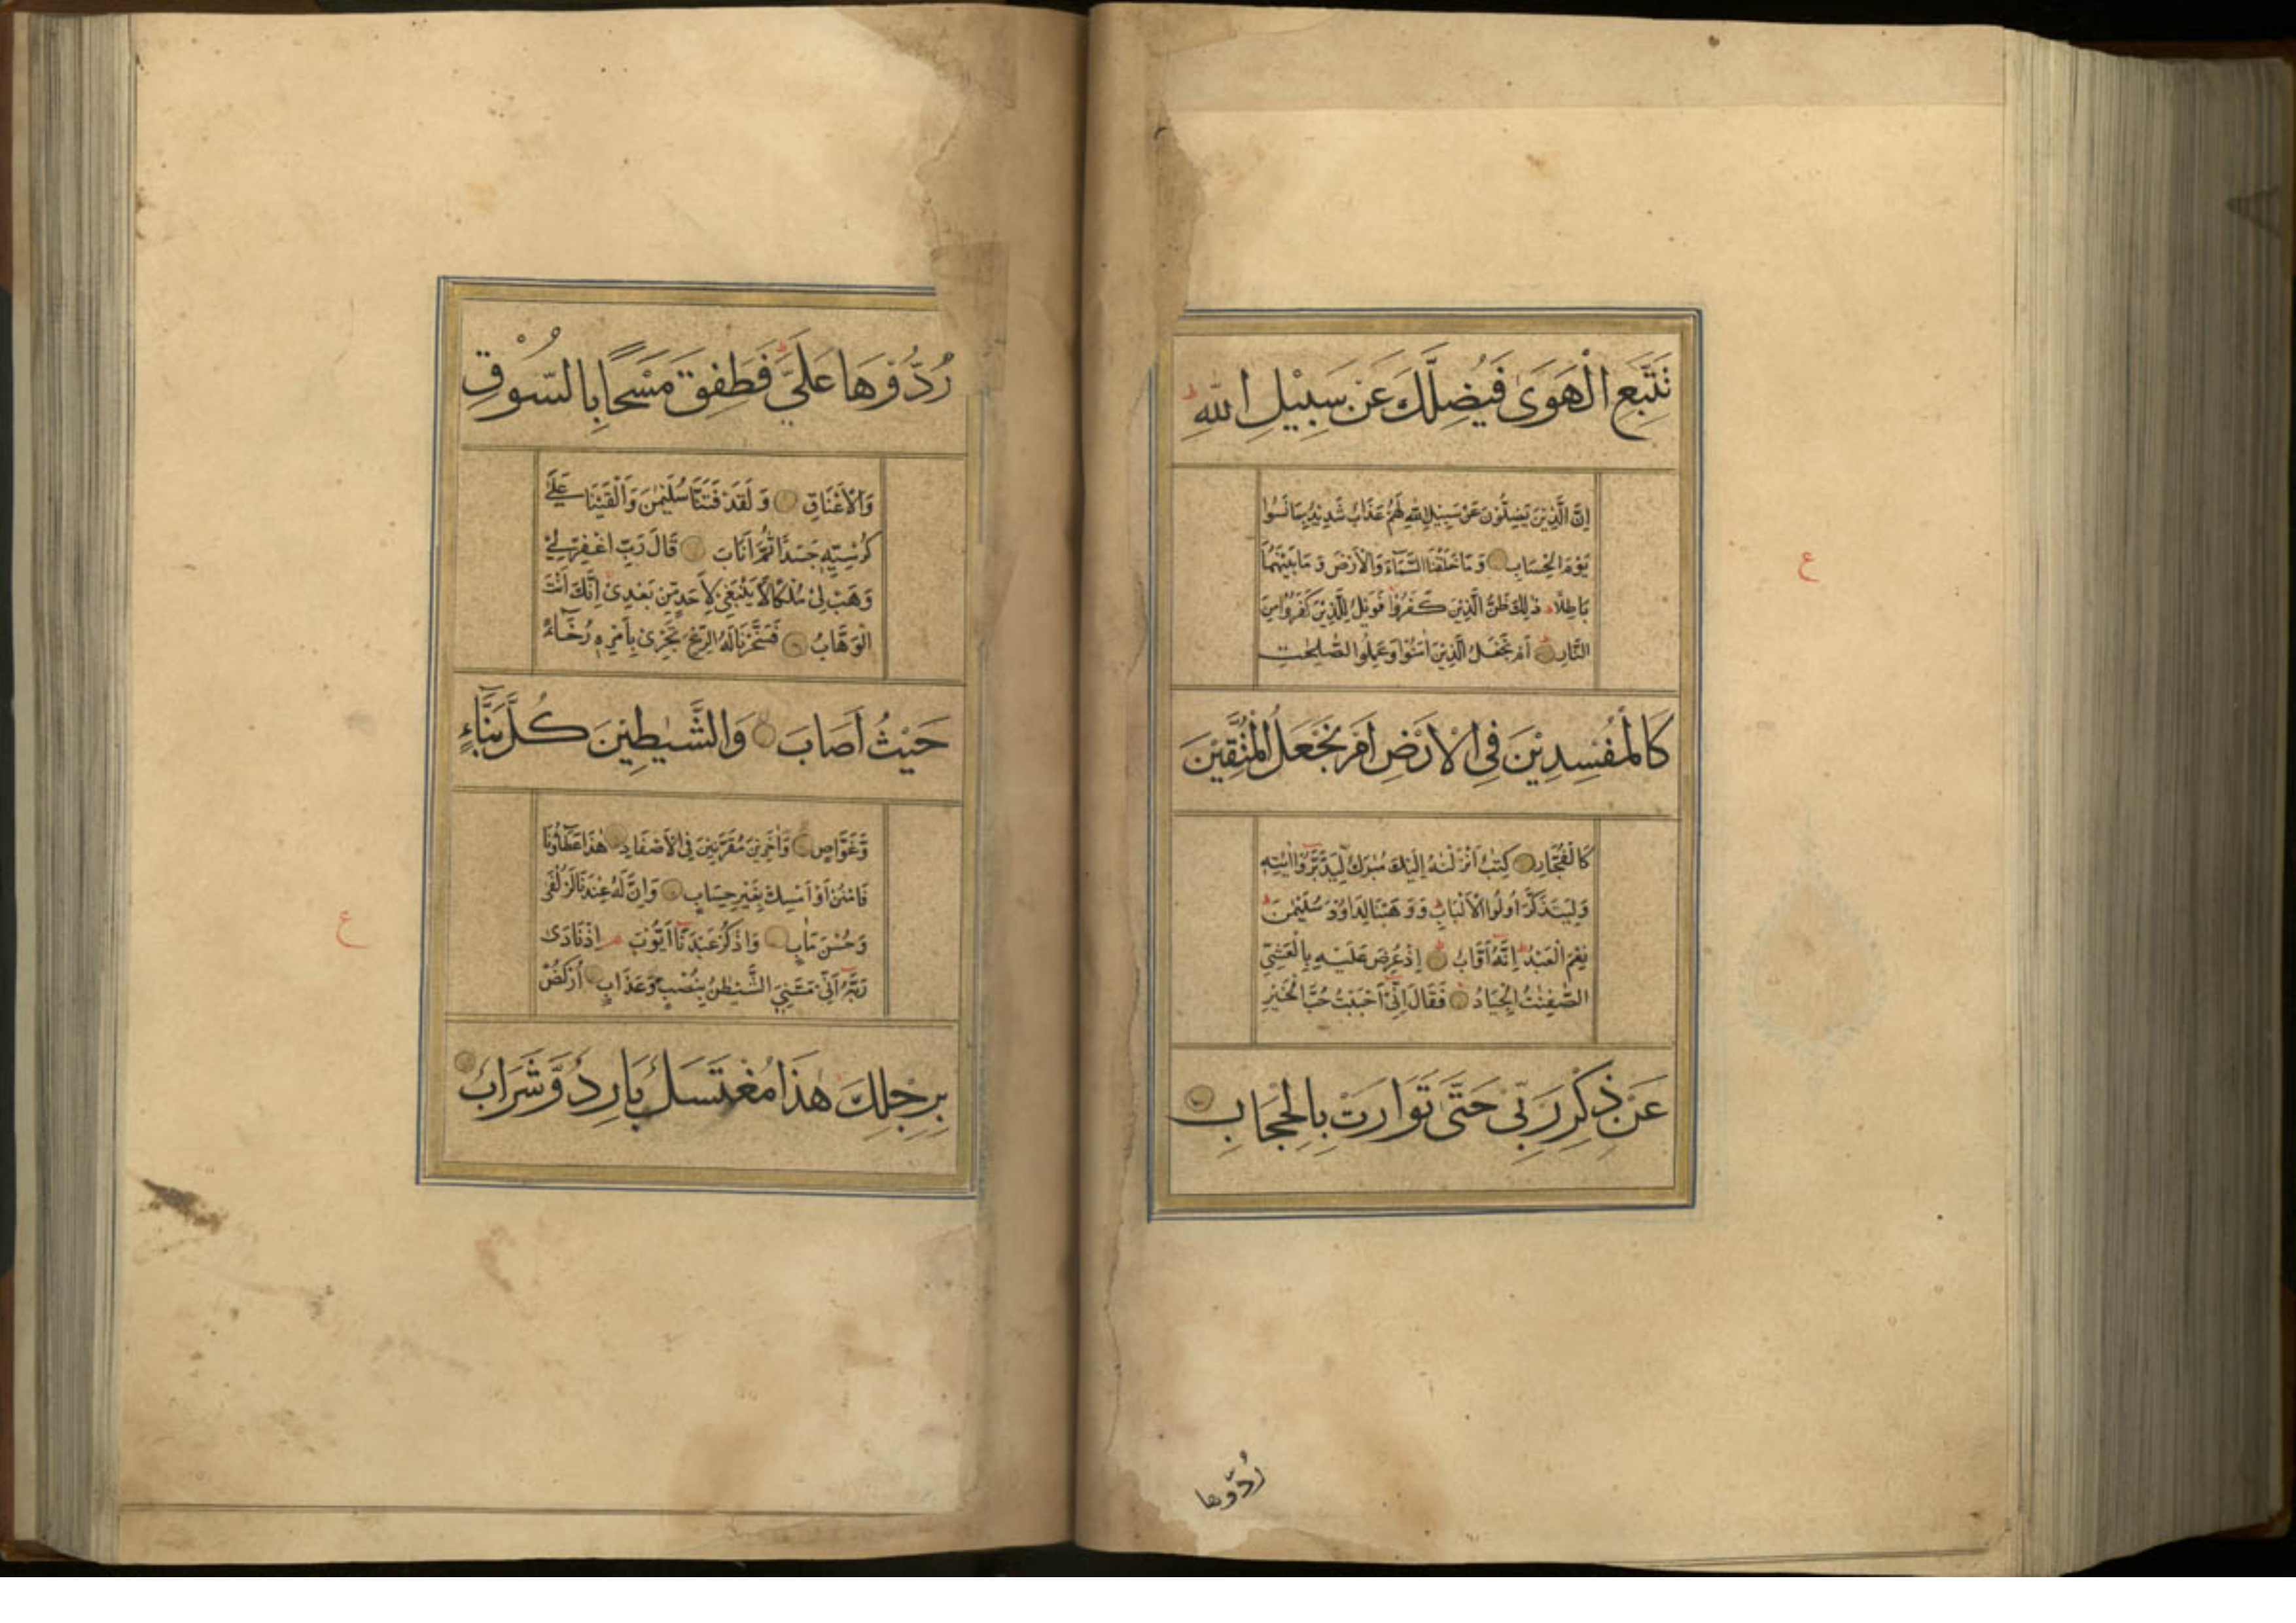 نَتَّبِعِ الْهَوَىٰ فَيُضِلَّكَ عَنْ سَبِيْلِ اللّٰهِ
اِنَّ الَّذِيْنَ يَضِلُّوْنَ عَنْ سَبِيْلِ اللّٰهِ لَهُمْ عَذَابٌ شَدِيْدٌ بِمَا نَسُوا
يَوْمَ الْحِسَابِ وَمَا خَلَقْنَا السَّمَآءَ وَالْاَرْضَ وَمَا بَيْنَهُمَا
بَاطِلًا ذٰلِكَ ظَنُّ الَّذِيْنَ كَفَرُوْا فَوَيْلٌ لِلَّذِيْنَ كَفَرُوْا مِنَ
النَّارِ اَمْ نَجْعَلُ الَّذِيْنَ اٰمَنُوْا وَعَمِلُوا الصّٰلِحٰتِ
كَالْمُفْسِدِيْنَ فِى الْاَرْضِ اَمْ نَجْعَلُ الْمُتَّقِيْنَ
كَالْفُجَّارِ كِتٰبٌ اَنْزَلْنٰهُ اِلَيْكَ مُبٰرَكٌ لِيَدَّبَّرُوْا اٰيٰتِهٖ
وَلِيَتَذَكَّرَ اُولُوا الْاَلْبَابِ وَوَهَبْنَا لِدَاوٗدَ سُلَيْمٰنَ
نِعْمَ الْعَبْدُ اِنَّهٗ اَوَّابٌ اِذْ عُرِضَ عَلَيْهِ بِالْعَشِيِّ
الصّٰفِنٰتُ الْجِيَادُ فَقَالَ اِنِّيْ اَحْبَبْتُ حُبَّ الْخَيْرِ
عَنْ ذِكْرِ رَبِّيْ حَتّٰى تَوَارَتْ بِالْحِجَابِ
ع
رُدُّوها
رُدُّوْهَا عَلَيَّ فَطَفِقَ مَسْحًا بِالسُّوْقِ
وَالْاَعْنَاقِ وَلَقَدْ فَتَنَّا سُلَيْمٰنَ وَاَلْقَيْنَا عَلٰى
كُرْسِيِّهٖ جَسَدًا ثُمَّ اَنَابَ قَالَ رَبِّ اغْفِرْ لِيْ
وَهَبْ لِيْ مُلْكًا لَا يَنْبَغِيْ لِاَحَدٍ مِّنْ بَعْدِيْ اِنَّكَ اَنْتَ
الْوَهَّابُ فَسَخَّرْنَا لَهُ الرِّيْحَ تَجْرِيْ بِاَمْرِهٖ رُخَآءً
حَيْثُ اَصَابَ وَالشَّيٰطِيْنَ كُلَّ بَنَّآءٍ
وَّغَوَّاصٍ وَّاٰخَرِيْنَ مُقَرَّنِيْنَ فِى الْاَصْفَادِ هٰذَا عَطَآؤُنَا
فَامْنُنْ اَوْ اَمْسِكْ بِغَيْرِ حِسَابٍ وَاِنَّ لَهٗ عِنْدَنَا لَزُلْفٰى
وَحُسْنَ مَاٰبٍ وَاذْكُرْ عَبْدَنَآ اَيُّوْبَ اِذْ نَادٰى
رَبَّهٗٓ اَنِّيْ مَسَّنِيَ الشَّيْطٰنُ بِنُصْبٍ وَّعَذَابٍ اُرْكُضْ
بِرِجْلِكَ هٰذَا مُغْتَسَلٌ بَارِدٌ وَّشَرَابٌ
ع